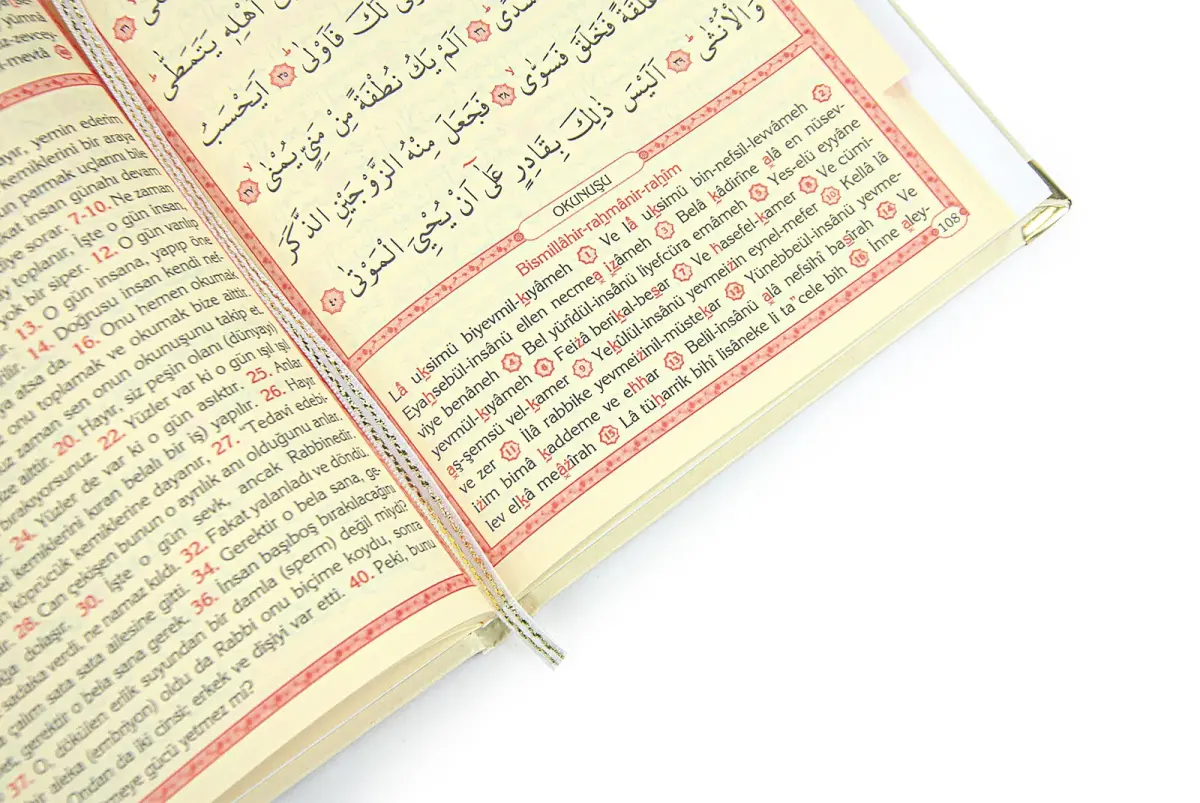 اَهْلِهٖ يَتَمَطّٰى
لَكَ فَاَوْلٰى ٣٥ اَيَحْسَبُ
سُدًى ٣٦ اَلَمْ يَكُ نُطْفَةً مِنْ مَنِيٍّ يُمْنٰى ٣٧
عَلَقَةً فَخَلَقَ فَسَوّٰى ٣٨ فَجَعَلَ مِنْهُ الزَّوْجَيْنِ الذَّكَرَ
وَالْاُنْثٰى ٣٩ اَلَيْسَ ذٰلِكَ بِقَادِرٍ عَلٰٓى اَنْ يُحْيِيَ الْمَوْتٰى ٤٠
OKUNUŞU
Bismillâhir-rahmânir-rahîm
Lâ uksimü biyevmil-kıyâmeh 1 Ve lâ uksimü bin-nefsil-levvâmeh 2
Eyahsebül-insânü ellen necmea izâmeh 3 Belâ kâdirîne alâ en nüsev-
viye benâneh 4 Bel yürîdül-insânü liyefcüra emâmeh 5 Yes-elü eyyâne
yevmül-kıyâmeh 6 Feizâ berikal-besar 7 Ve hasefel-kamer 8 Ve cümi-
aş-şemsü vel-kamer 9 Yekûlül-insânü yevmeizin eynel-mefer 10 Kellâ lâ
ve zer 11 İlâ rabbike yevmeizinil-müstekar 12 Yünebbeül-insânü yevme-
izim bimâ kaddeme ve ehhar 13 Belil-insânü alâ nefsihî basîrah 14 Ve
lev elkâ meâzîrah 15 Lâ tüharrik bihî lisâneke li ta"cele bih 16 İnne aley-
108
yümnâ
-zevcey-
l-mevtâ
ayır, yemin ederim
kemiklerini bir araya
ün parmak uçlarını bile
kat insan günahı devam
iye sorar. 7-10. Ne zaman
y toplanır, İşte o gün insan,
yok bir siper. 12. O gün varılıp
13. O gün insana, yapıp öne
14. Doğrusu insan kendi nef-
ya atsa da. 16. Onu hemen okumak
z onu toplamak ve okumak bize aittir.
uz zaman sen onun okunuşunu takip et.
ize aittir. 20. Hayır, siz peşin olanı (dünyayı)
bırakıyorsunuz. 22. Yüzler var ki o gün ışıl ışıl
24. Yüzler de var ki o gün asıktır. 25. Anlar
el kemiklerini kıran belalı bir iş) yapılır. 26. Hayır
n köprücük kemiklerine dayanır, 27. "Tedavi edebir
28. Can çekişen bunun o ayrılık anı olduğunu anlar.
ğa dolaşır. 30. İşte o gün sevk, ancak Rabbinedir.
sadaka verdi, ne namaz kıldı. 32. Fakat yalanladı ve döndü.
a çalım sata sata ailesine gitti. 34. Gerektir o bela sana, ge-
et, gerektir o bela sana gerek. 36. İnsan başıboş bırakılacağını
37. O, dökülen erlik suyundan bir damla (sperm) değil miydi?
bir aleka (embriyon) oldu da Rabbi onu biçime koydu, sonra
Ondan da iki cinsi; erkek ve dişiyi var etti. 40. Peki, bunu
meye gücü yetmez mi?